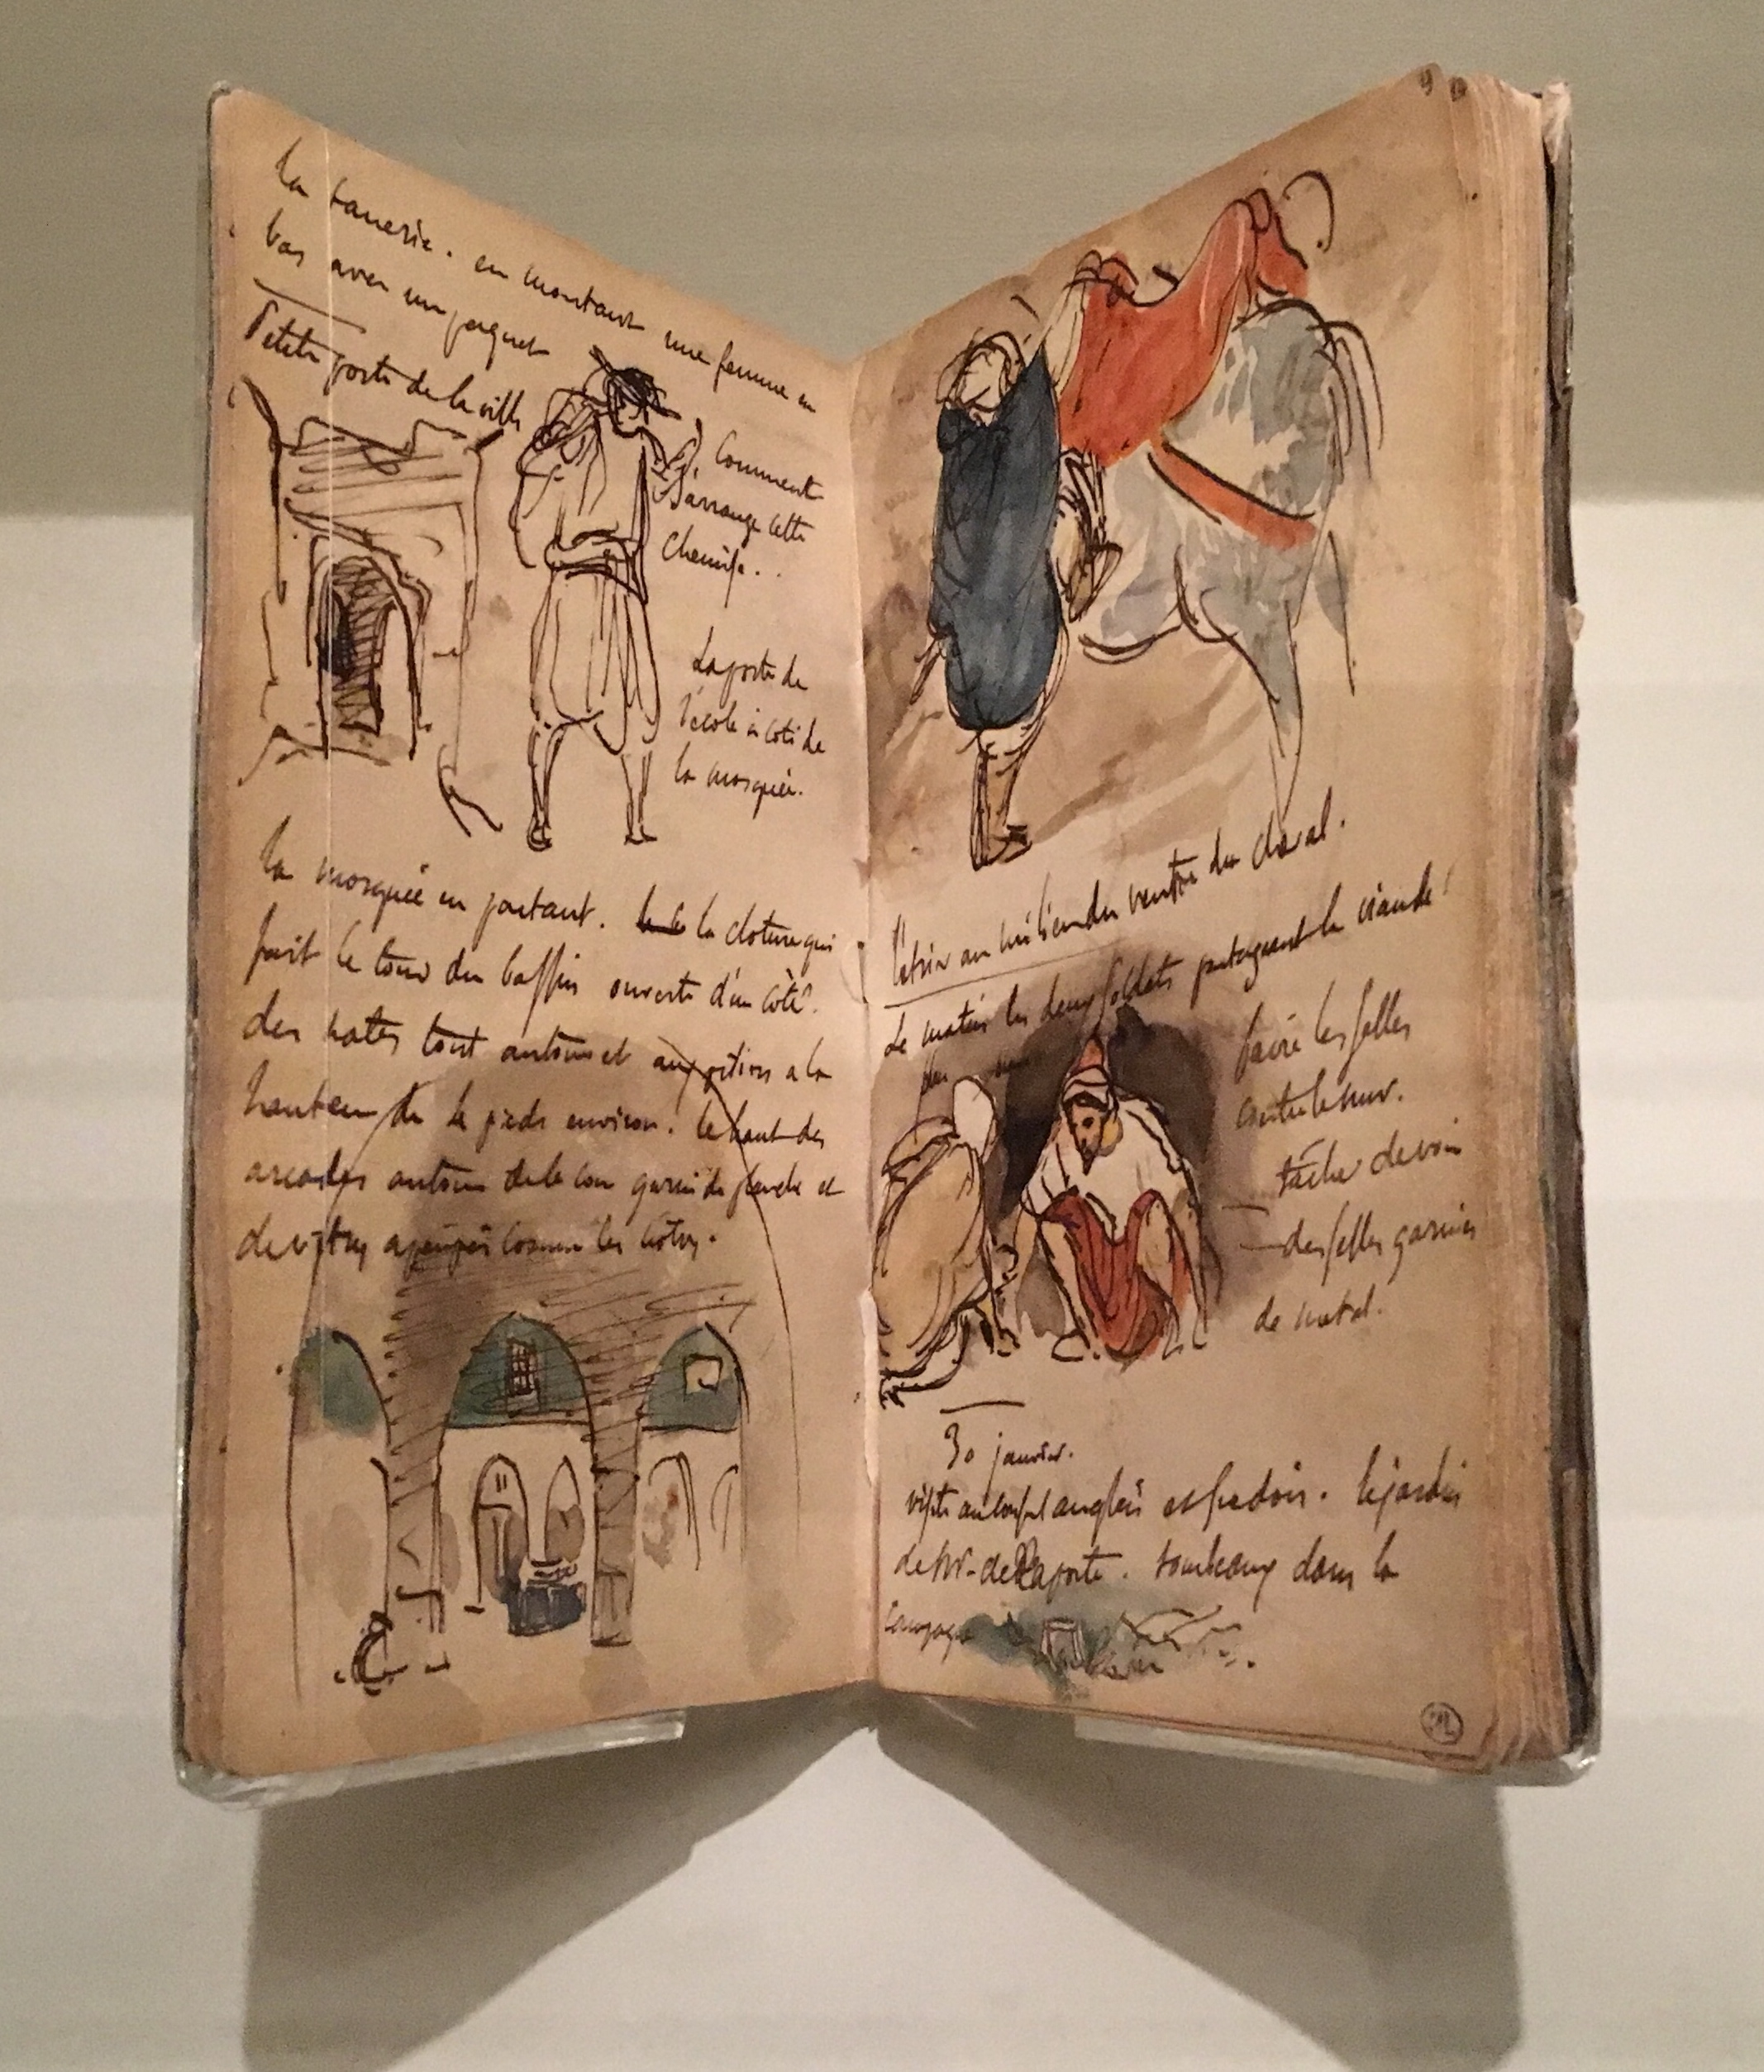 la tanerie. en montant une femme en
bas avec un paquet
Petite porte de la ville
Comment
s'arrange cette
chemise..
La porte de
l'école à coté de
la mosquée.
la mosquée en partant. la cloture qui
fait le tour du bassin ouverte d'un côté.
des nates tout autour et aux piliers a la
hauteur de pieds environ. le haut des
arcades autour de la cour garni de planche et
de vitres comme les notres.
9
l'étrier au milieu du ventre du cheval.
Le matin les deux soldats partageant la viande
faire les selles
contre le mur.
tâcher de voir
des selles garnies
de metal.
30 janvier.
visite au consul anglais et suedois. le jardin
de Mr. de Laporte. tombeaux dans la
campagne